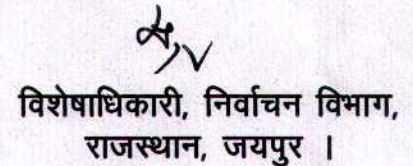 विशेषाधिकारी, निर्वाचन विभाग,
राजस्थान, जयपुर ।